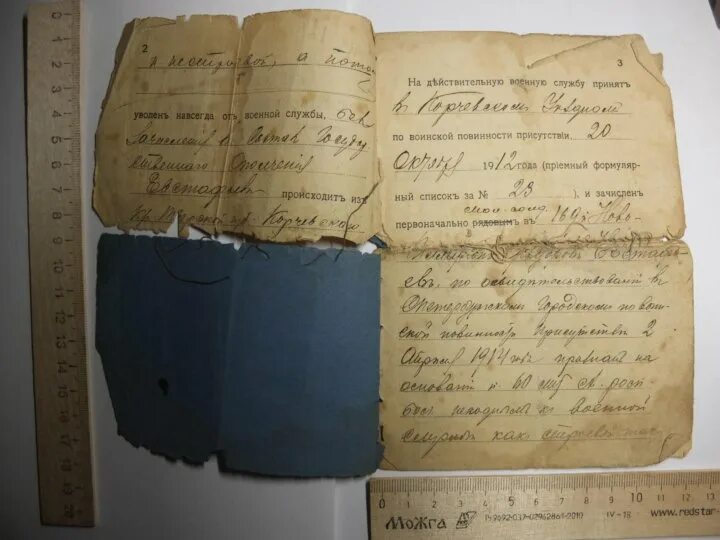 2
и нестроевой, а потом
уволенъ навсегда отъ военной службы, без
зачисленія въ Состав Госуду
ственнаго Ополченія
Евстафьев происходитъ изъ
кр. Тверской губ. Корчевского
3
На дѣйствительную военную службу принятъ
въ Корчевскомъ Уѣздномъ
по воинской повинности присутствіи, 20
Октября 1912 года (пріемный формуляр-
ный списокъ за № 23 ), и зачисленъ
первоначально рядовымъ въ 169й Ново
Евстафь
евъ, по освидѣтельствованіи въ
Петербургскомъ Городскомъ по воин
ской повинности Присутствіи 2
Апрѣля 1914 года признанъ на
основаніи п 60 лит
негоднымъ къ военной
службѣ как строевой
0 1 2 3 4 5 6 7 8 9 10 11 12 13 14 15 16 17 18 19 20
0 1 2 3 4 5 6 7 8 9 10 11 12 13
МоЖга IV-18 www.redstar-